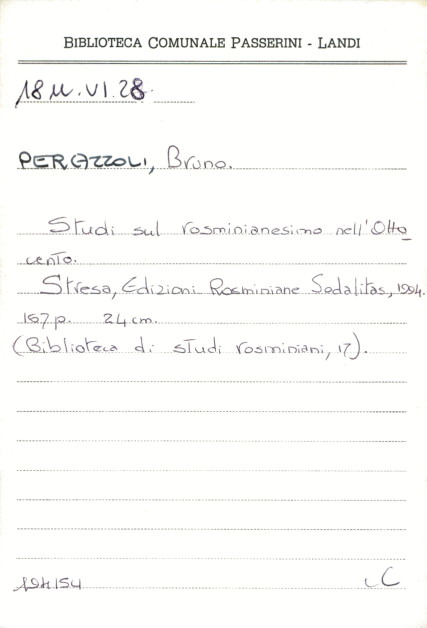 BIBLIOTECA COMUNALE PASSERINI - LANDI
18 M. VI. 28
PERAZZOLI, Bruno.
Studi sul rosminianesimo nell'Otto
cento.
Stresa, Edizioni Rosminiane Sodalitas, 1994.
157 p. 24 cm.
(Biblioteca di studi rosminiani, 17).
C